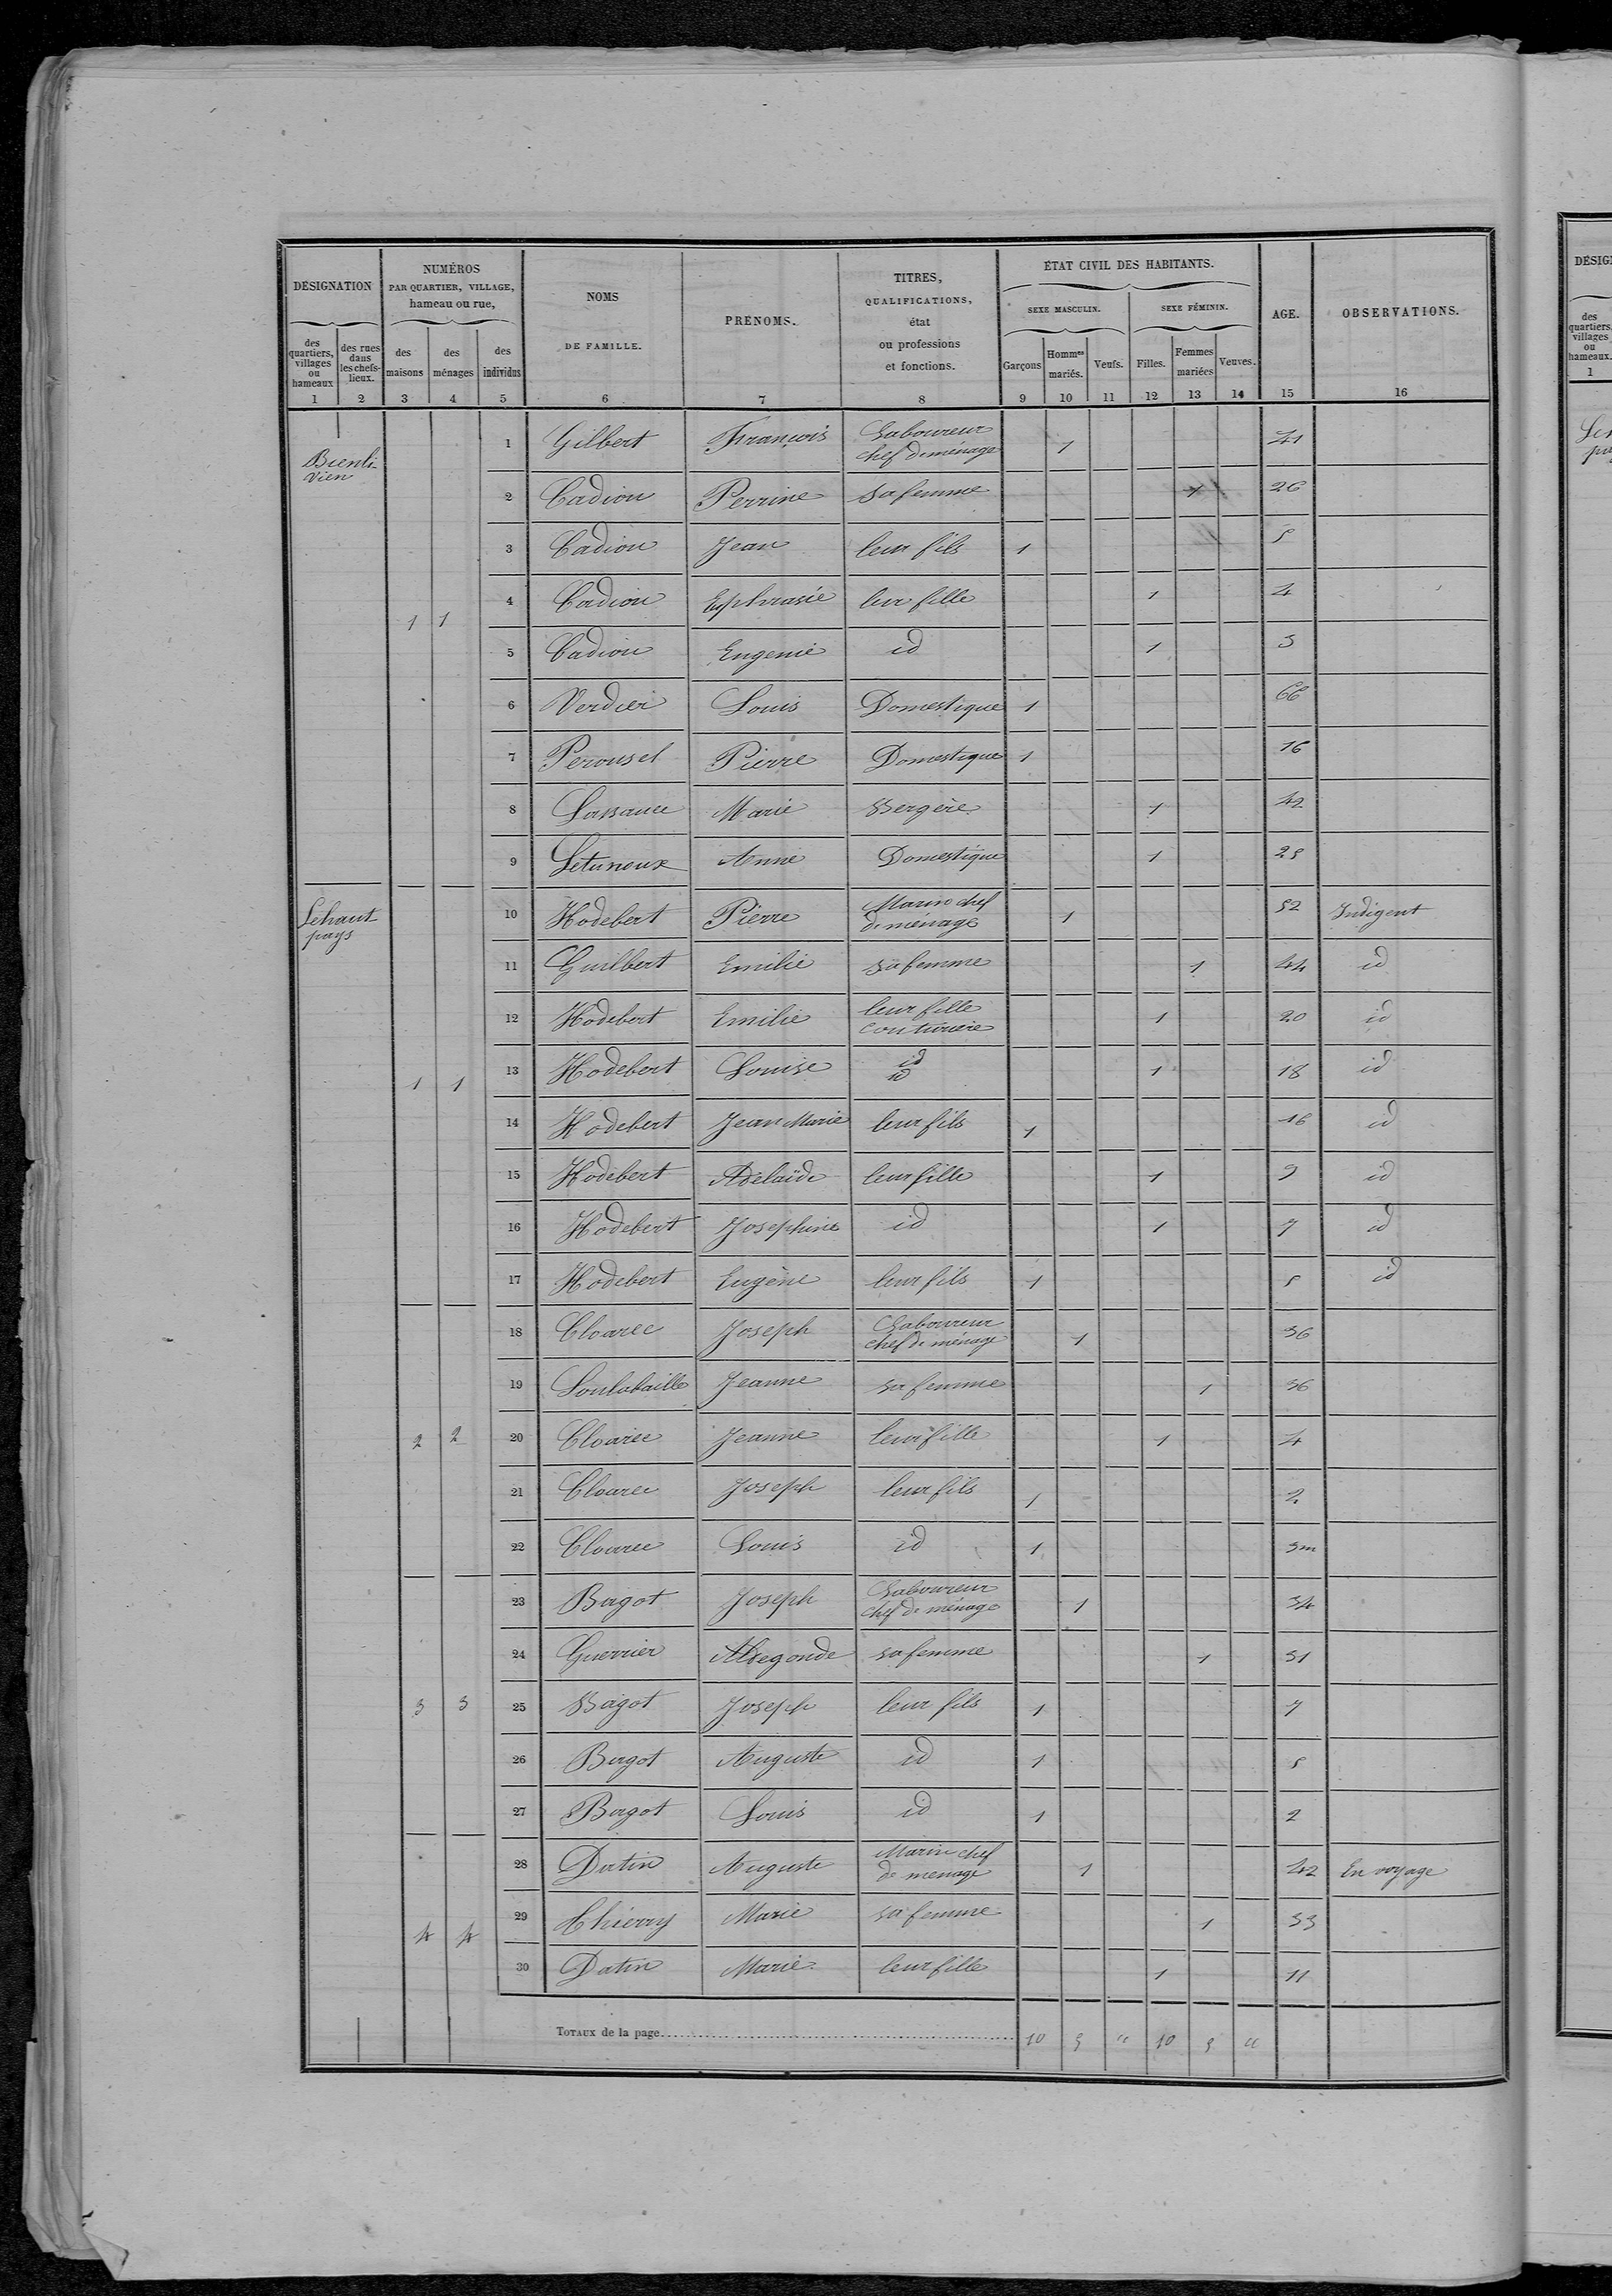 DÉSIGNATION
NUMÉROS
PAR QUARTIER, VILLAGE,
hameau ou rue,
NOMS
DE FAMILLE.
PRÉNOMS.
TITRES,
QUALIFICATIONS,
état
ou professions
et fonctions.
ÉTAT CIVIL DES HABITANTS.
SEXE MASCULIN.
SEXE FÉMININ.
AGE.
OBSERVATIONS.
des quartiers, villages ou hameaux
des rues dans les chefs-lieux.
des maisons
des ménages
des individus
Garçons
Hommes mariés.
Veufs.
Filles.
Femmes mariées
Veuves.
1 2 3 4 5 6 7 8 9 10 11 12 13 14 15 16
Bienli-
vien
1 Gilbert François Laboureur chef de ménage 1 41
2 Cadiou Perrine sa femme 1 26
3 Cadiou Jean leur fils 1 5
1 1 4 Cadiou Euphrasie leur fille 1 4
5 Cadiou Eugenie id 1 3
6 Verdier Louis Domestique 1 66
7 Perousel Pierre Domestique 1 16
8 Lassauce Marie Bergère 1 42
9 Letuneux Anne Domestique 1 25
Le haut
pays
10 Hodebert Pierre Marin chef de ménage 1 52 Indigent
11 Guilbert Emilie sa femme 1 44 id
12 Hodebert Emilie leur fille couturière 1 20 id
1 1 13 Hodebert Louise id id 1 18 id
14 Hodebert Jean Marie leur fils 1 16 id
15 Hodebert Adelaïde leur fille 1 9 id
16 Hodebert Josephine id 1 7 id
17 Hodebert Eugène leur fils 1 5 id
18 Cloarec Joseph Laboureur chef de ménage 1 36
19 Soulabaille Jeanne sa femme 1 36
2 2 20 Cloarec Jeanne leur fille 1 4
21 Cloarec Joseph leur fils 1 2
22 Cloarec Louis id 1 3m
23 Bagot Joseph Laboureur chef de ménage 1 34
24 Guerrier Aldegonde sa femme 1 31
3 3 25 Bagot Joseph leur fils 1 7
26 Bagot Auguste id 1 5
27 Bagot Louis id 1 2
28 Datin Auguste Marin chef de menage 1 42 En voyage
4 4 29 Thierry Marie sa femme 1 33
30 Datin Marie leur fille 1 11
TOTAUX de la page 10 5 " 10 5 "
DÉSIG
des quartiers, villages ou hameaux.
1